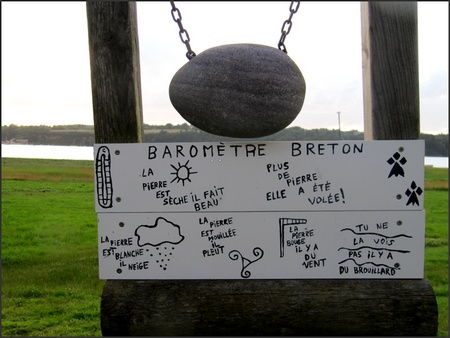 BAROMÈTRE BRETON
LA
PIERRE
EST
SÈCHE IL FAIT
BEAU
PLUS
DE
PIERRE
ELLE A ÉTÉ
VOLÉE!
LA PIERRE
EST
BLANCHE
IL
NEIGE
LA PIERRE
EST
MOUILLÉE
IL
PLEUT
LA
PIERRE
BOUGE
IL Y A
DU
VENT
TU NE
LA VOIS
PAS IL Y A
DU BROUILLARD